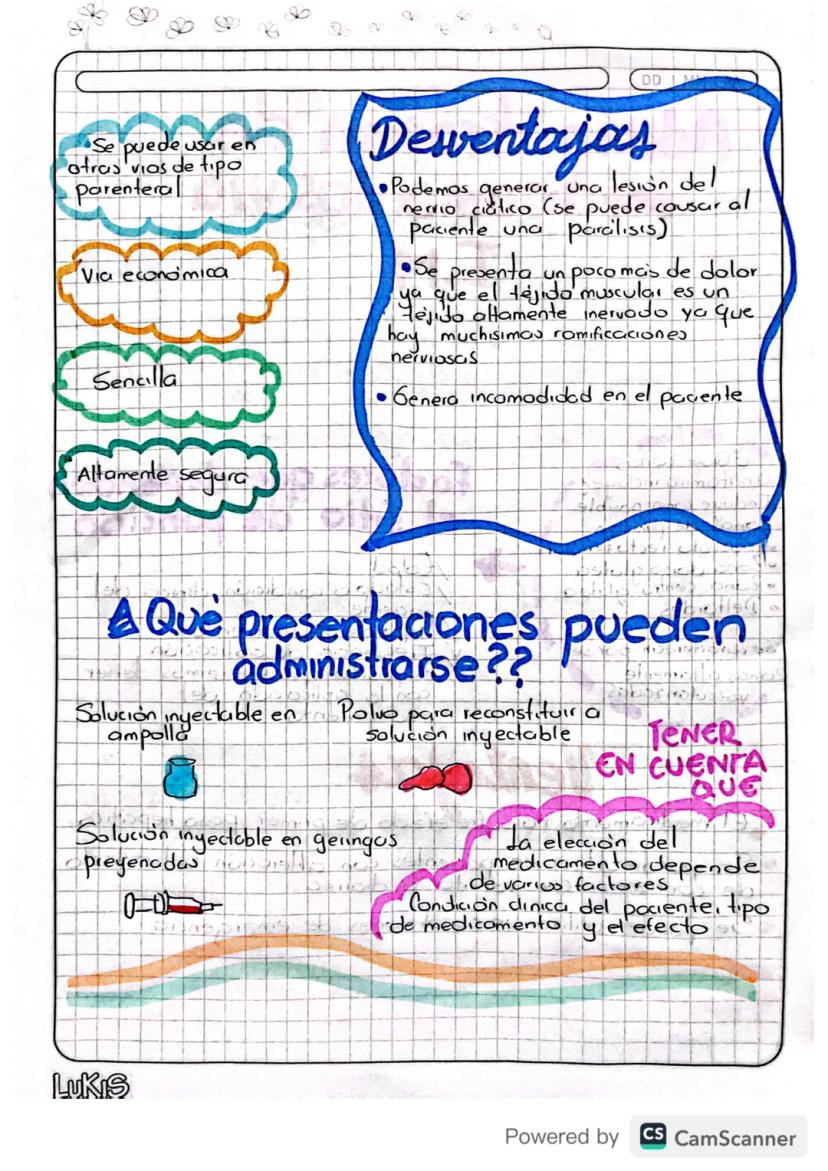 Se puede usar en
otras vias de tipo
parenteral
Via económica
Sencilla
Altamente segura
Desventajas
•Podemos generar una lesión del
nervio ciático (se puede causar al
paciente una parálisis)
•Se presenta un poco más de dolor
ya que el téjido muscular es un
téjido altamente inervado ya que
hay muchisimas ramificaciones
nerviosas
•Genera incomodidad en el paciente
Qué presentaciones pueden
administrarse??
Solución inyectable en
ampolla
Polvo para reconstituir a
solución inyectable
Solución inyectable en geringas
preyenadas
TENER
EN CUENTA
QUE
La elección del
medicamento depende
de varios factores
Condición clinica del paciente, tipo
de medicamento y el efecto
LUKIS
Powered by CS CamScanner